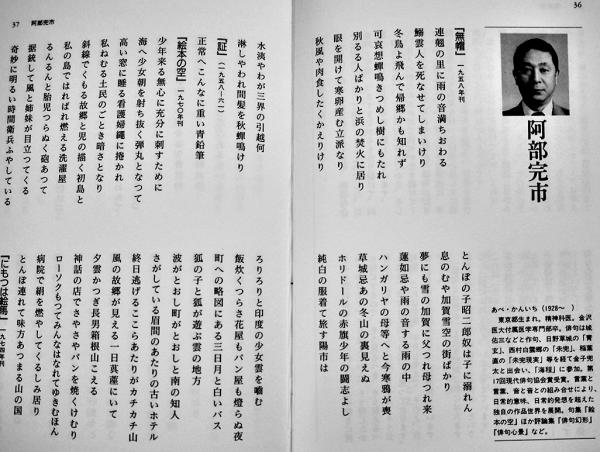 36
阿部完市
『無帽』 一九五八年刊
連翹の里に雨の音満ちおわる
鰯雲人を死なせてしまいけり
冬鳥よ飛んで帰郷かも知れず
可哀想蟬鳴きつめし樹にもたれ
別るる人ばかりと浜の焚火に居り
眼を開けて寒卵産む立派なり
秋風や肉食したくかえりけり
あべ・かんいち(1928〜 )
東京都生まれ。精神科医。金沢
医大付属医学専門部卒。俳句は城
佑三などと作句、日野草城の「青
玄」、西村白雲郷の「未完」、稲葉
直の「未完現実」等を経て金子兜
太と出会い、「海程」に参加。第
17回現代俳句協会賞受賞。言葉と
言葉、音と音との組み合せにより、
日常的意味、日常的発想を超えた
独自の作品世界を展開。句集『絵
本の空』ほか評論集『俳句幻形』
『俳句心景』など。
とんぼの子昭二郎奴は子に溺れん
息のむや加賀雪空の街ばかり
夢にも雪の加賀に父つれ母つれ来
蓮如忌や雨の音する雨の中
ハンガリヤの母等へと今寒鴉が喪
草城忌あの冬山の裏見えぬ
ホリドールの赤旗少年の闘志よし
純白の服着て旅す陽市は
37 阿部完市
水洟やわが三界の引越何
淋しやわれ間髪を秋蟬鳴けり
『証』 (一九五八―六一)
正常へこんなに重い青鉛筆
『絵本の空』 一九七〇年刊
少年来る無心に充分に刺すために
海へ少女朝を射ち抜く弾丸となつて
高い窓に睡る看護婦縄に捲かれ
私ねむる土民のごとき暗さとなり
斜線でくもる故郷と児の描く初島と
私の島ではればれ燃える洗濯屋
るんるんと胎児つらぬく砲あつて
据銃して風と姉妹が目立つてくる
奇妙に明るい時間衛兵ふやしている
ろりろりと印度の少女雲を嚙む
飯炊くつらさ花屋もパン屋も燈らぬ夜
町への略図にある三日月と白いバス
狐の子と狐が遊ぶ雲の地方
波がとおし町がとおしと南の知人
さがしている眉間のあたりの古いホテル
終日逃げるここらあたりがカチカチ山
風の故郷が見える一日莫蓙にいて
夕雲かつぎ長男箱根山こえる
神話の店でさやさやパンを焼くけむり
ローソクもつてみんなはなれてゆきむほん
病院で絹を燃やしてくるしみ居り
とんぼ連れて味方あつまる山の国
『にもつは絵馬』 一九七四年刊